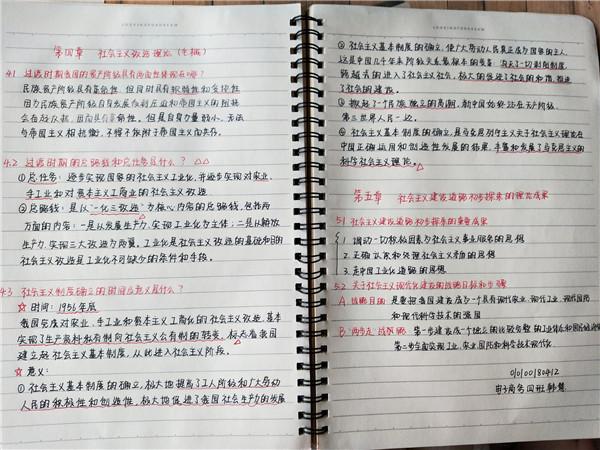 第四章 社会主义改造理论(老楠)
4.1 过渡时期我国的资产阶级具有两面性体现在哪?
民族资产阶级具有革命性,但同时具有软弱性和妥协性
因为民族资产阶级自身发展受到
会
与帝国主义相抗衡,不得不依附于帝国主义而失存。
4.2 过渡时期的总路线和总任务是什么? △△
① 总任务:逐步实现国家的社会主义工业化,并逐步实现对农业、
手工业和对资本主义工商业的社会主义改造
② 总路线:是以"一化三改造"为核心内容的总路线,包括两
方面的内容:一是发展生产力,实现工业化为主体;二是以解放
生产力,实现三大改造为两翼。工业化是社会主义改造的基础和目的
社会主义改造是工业化不可缺少的条件和手段。
4.3 社会主义制度确立的时间及意义是什么?
☆ 时间:1956年底
我国完成对农业、手工业和资本主义工商化的社会主义改造,基本
实现了生产资料私有制向社会主义公有制的转变,标志着我国
建立起社会主义基本制度,从此进入社会主义阶段。
☆ 意义:
① 社会主义基本制度的确立,极大地提高了工人阶级和广大劳动
人民的积极性和创造性,极大地促进了我国社会生产力的发展
② 社会主义基本制度的确立,使广大劳动人民真正成为国家的主人
这是中国几千年来阶级关系最根本的变革,消灭了一切剥削制度
跨越式的进入了社会主义社会,极大的促进了社会的和谐,推进
了社会的建设。
③ 掀起了个民族独立的高潮,新中国始终站在无产阶级、
第三世界人民一边。
④ 社会主义基本制度的确立,是马克思列宁主义关于社会主义理论在
中国正确运用和创造性发展的结果,丰富和发展了马克思主义的
科学社会主义理论。△
第五章 社会主义建设道路初步探索的理论成果
5.1 社会主义建设道路初步探索的重要成果
1. 调动一切积极因素为社会主义事业服务的思想
2. 正确认识和处理社会主义矛盾的思想
3. 走中国工业化道路的思想
5.2 关于社会主义现代化建设的战略目标和步骤
A. 战略目的:是要把我国建设成为一个具有现代农业、现代工业、现代国防
和现代科学技术的强国
B. "两步走"战略: 第一步建成一个独立的比较完整的工业体系和国民经济体系
第二步全面实现工业、农业、国防和科学技术现代化
0101001804/2
电子商务四班